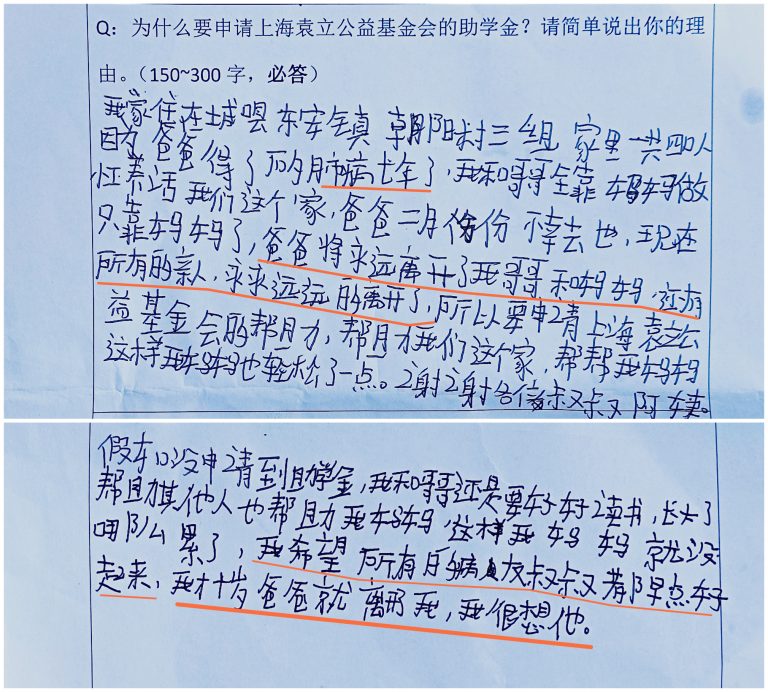 Q：为什么要申请上海袁立公益基金会的助学金？请简单说出你的理
由。（150~300 字，必答）
我家住在城口县东安镇 朝阳村三组 家里一共四口人
因为爸爸得了 肺病七年了，我和哥哥全靠妈妈做
养活我们这个家，爸爸二月份 不幸去世，现在
只靠妈妈了，爸爸将永远离开了我哥哥和妈妈，还有
所有的亲人，永永远远的离开了，所以要申请上海袁立公
益基金会的帮助，帮助我们这个家，帮帮我妈妈
这样我妈妈也轻松了一点。谢谢各位叔叔阿姨。
假如没申请到助学金，我和哥哥还是要好好读书，长大了
帮助其他人也帮助我妈妈，这样我妈妈就没
那么累了，我希望所有的病友叔叔都早点好
起来，我才十岁爸爸就离开我，我很想他。